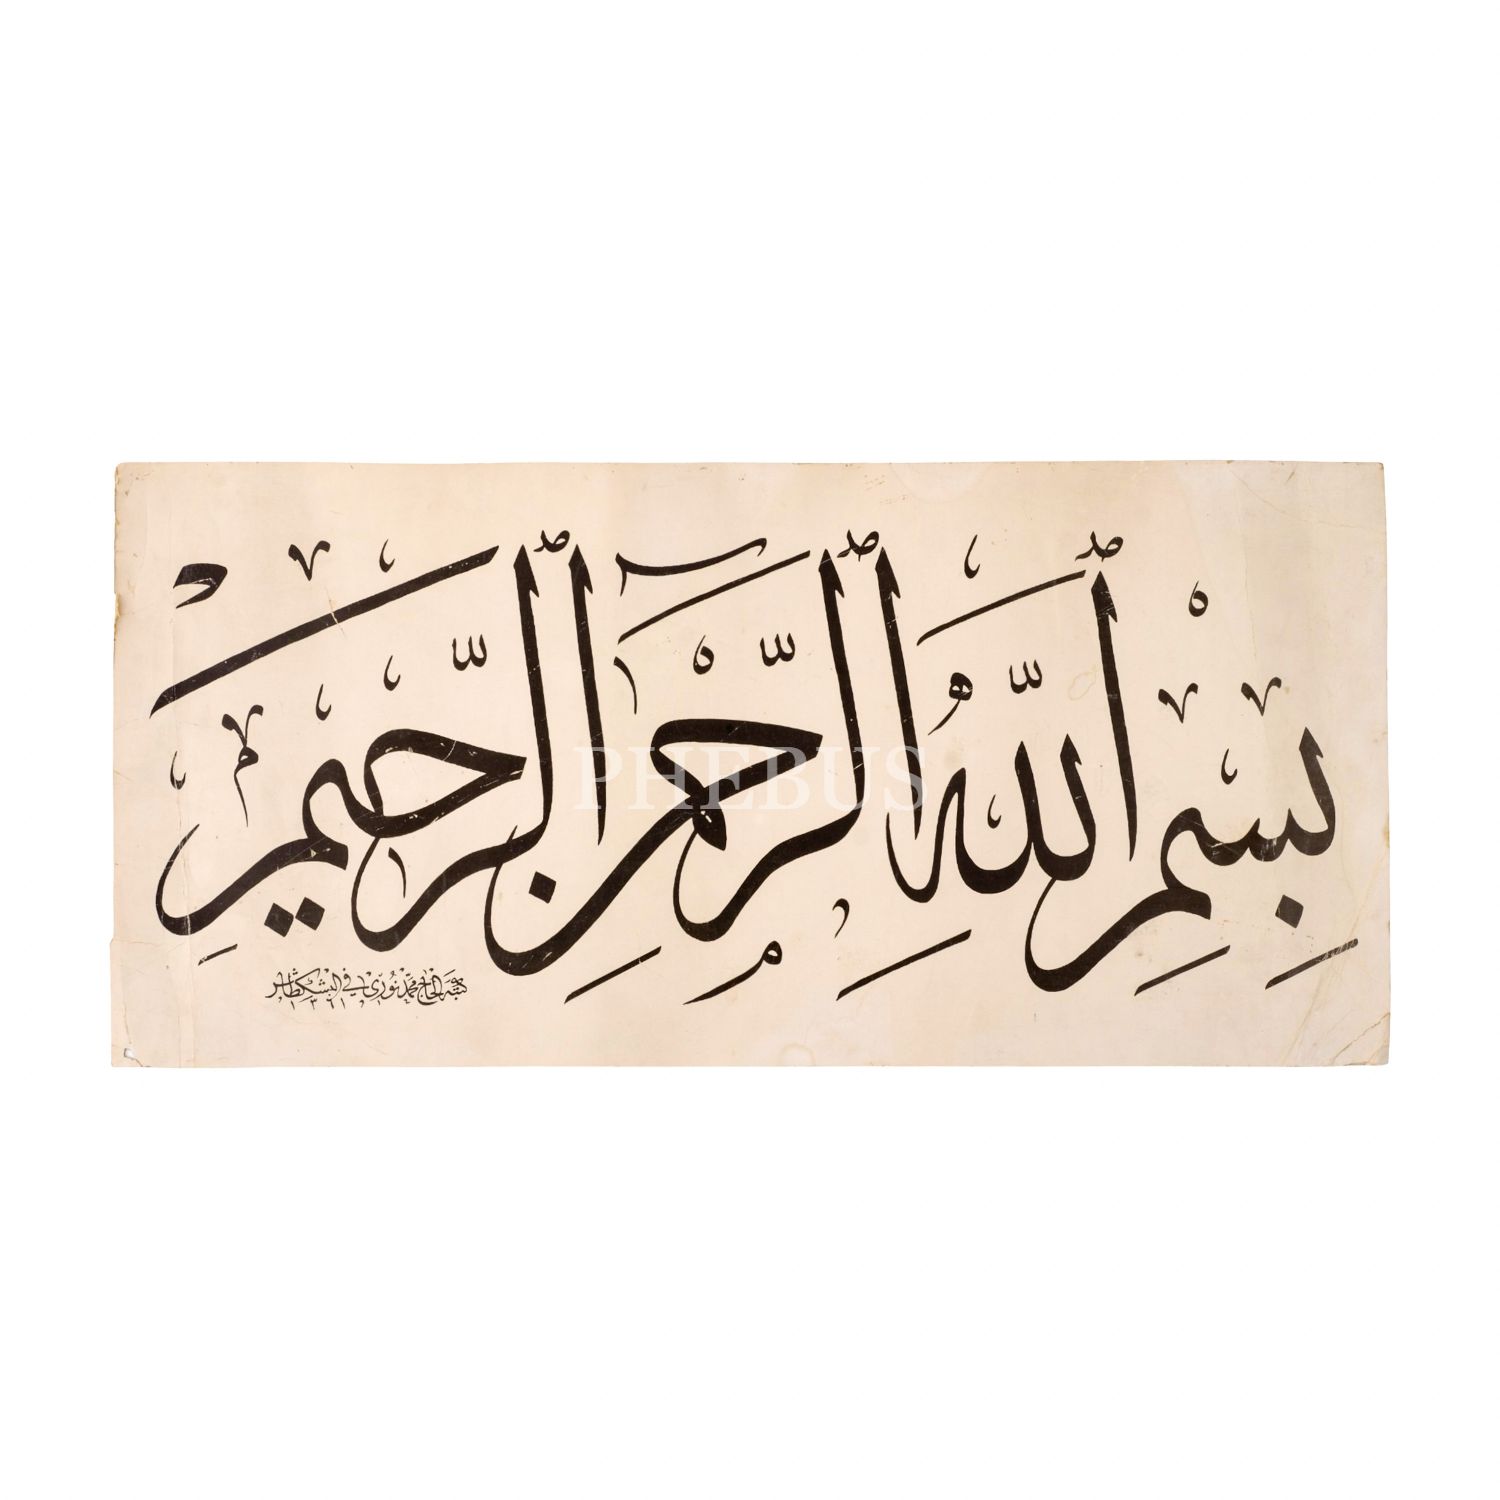 بِسْمِ ٱللّٰهِ ٱلرَّحْمٰنِ ٱلرَّحِيمِ
PHEBUS
كتبه الحاج محمد نوري في البشكطاش
١٣٦١